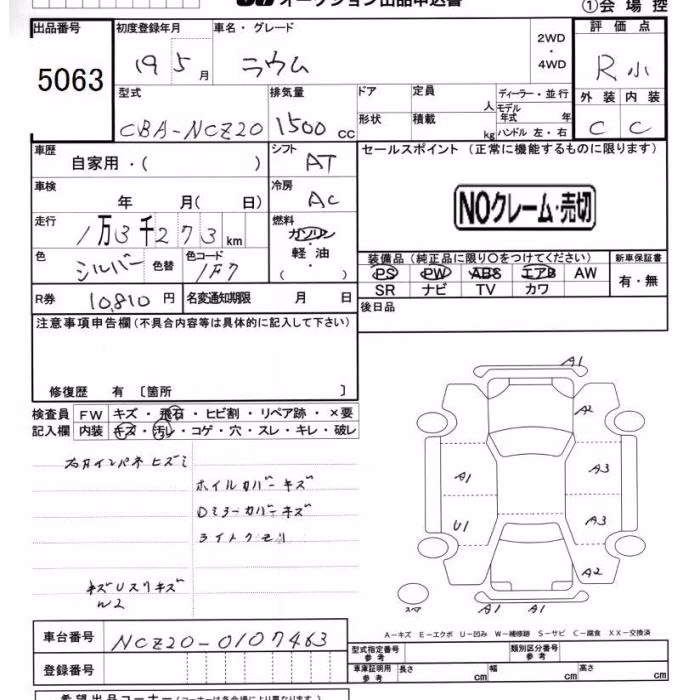 オークション出品申込書
①会場控
出品番号
5063
初度登録年月
19 5 月
車名・グレード
ラウム
2WD
・
4WD
評価点
R小
型式
CBA-NCZ20
排気量
1500 cc
ドア
形状
定員
人
積載
kg
ディーラー・並行
モデル年式 年
ハンドル 左・右
外装 内装
C C
車歴
自家用・( )
シフト
AT
セールスポイント(正常に機能するものに限ります)
車検
年 月( 日)
冷房
AC
NOクレーム・売切
走行
1万3千273km
燃料
ガソリン
・
軽油
・
( )
色
シルバー
色替
色コード
1F7
装備品(純正品に限り○をつけてください)
PS PW ABS エアB AW
SR ナビ TV カワ
新車保証書
有・無
R券
10,810 円
名変通知期限 月 日
後日品
注意事項申告欄(不具合内容等は具体的に記入して下さい)
修復歴 有 〔箇所 〕
検査員記入欄
FW キズ・飛石・ヒビ割・リペア跡・×要
内装 キズ・汚レ・コゲ・穴・スレ・キレ・破レ
左右インパネ ヒズミ
ホイルカバーキズ
Dミラーカバーキズ
ライトクモリ
キズUスリキズ
W2
A1
A2
A1
A3
U1
A3
A2
スペア
A1 A1
A-キズ E-エクボ U-凹み W-補修跡 S-サビ C-腐食 XX-交換済
車台番号
NCZ20-0107463
登録番号
型式指定番号
参考
類別区分番号
参考
車庫証明用
参考
長さ cm
幅 cm
高さ cm
希望出品コーナー(コーナーは各会場により異なります。)